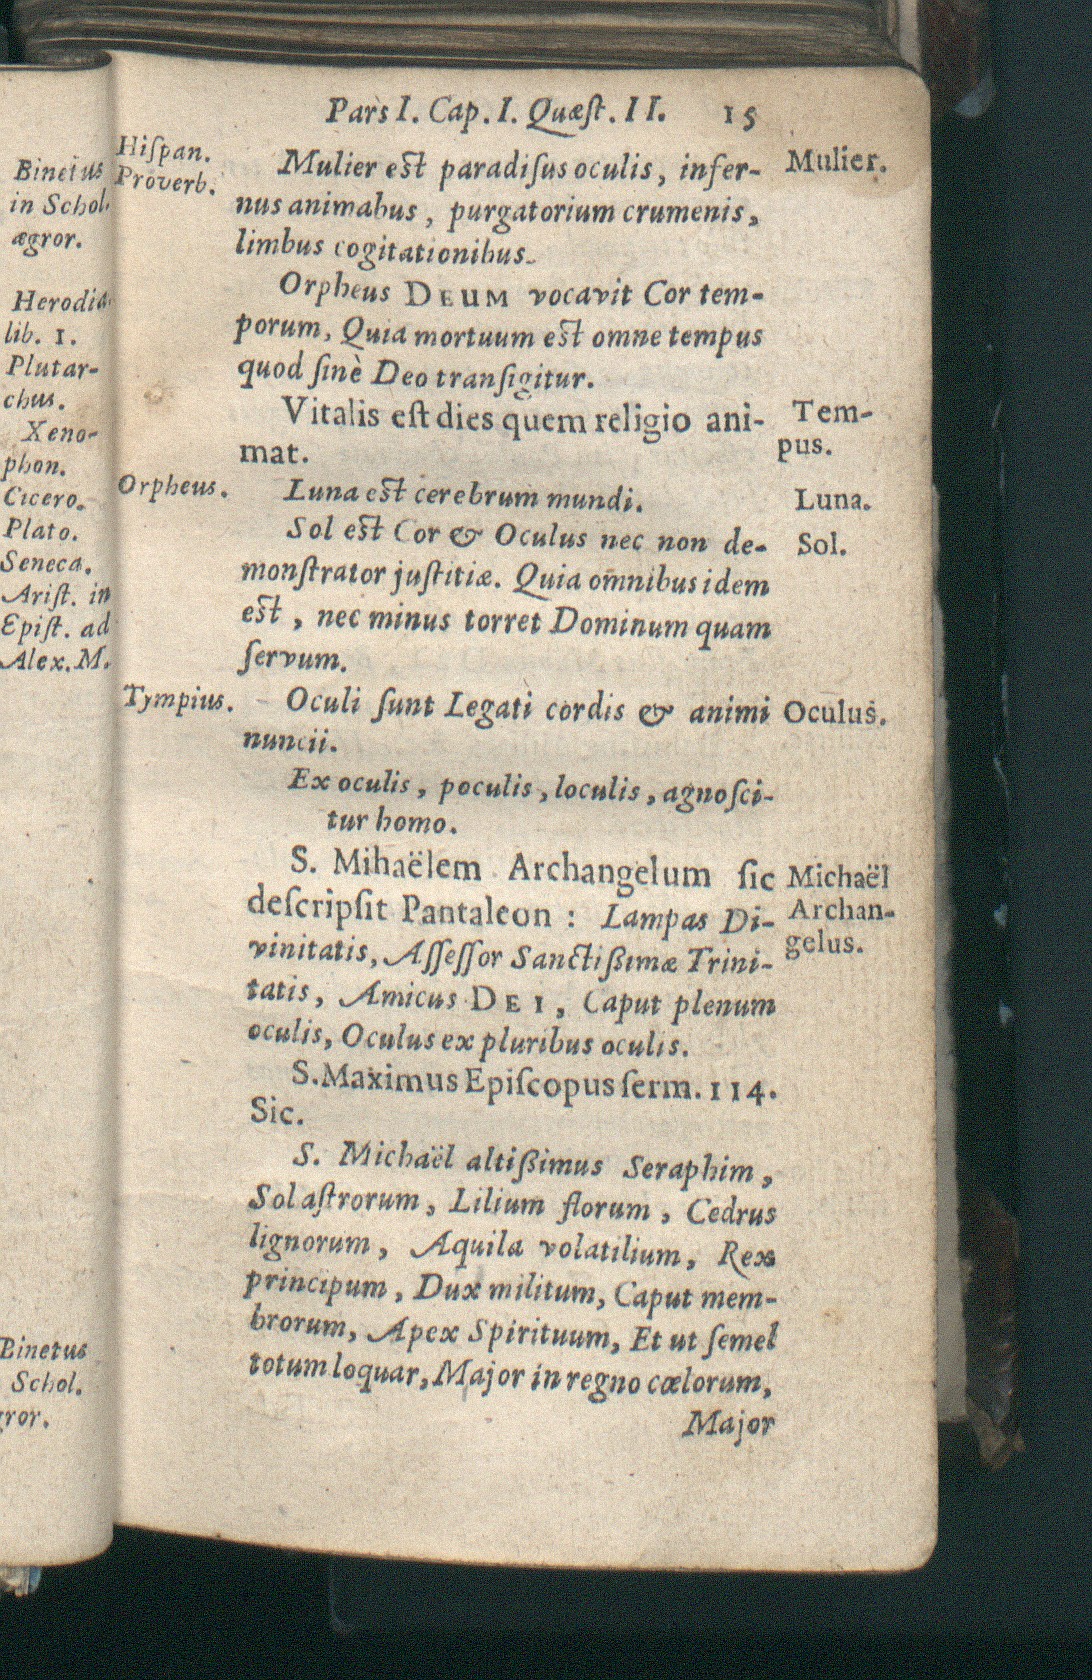 Pars I. Cap. I. Quæſt. II. 15
Binetus
in Schol.
ægror.
Herodia
lib. 1.
Plutar-
chus.
Xeno-
phon.
Cicero.
Plato.
Seneca.
Ariſt. in
Epiſt. ad
Alex. M.
Binetus
Schol.
gror.
Hiſpan.
Proverb.
Mulier eſt paradiſus oculis, infer- Mulier.
nus animabus, purgatorium crumenis,
limbus cogitationibus.
Orpheus DEUM vocavit Cor tem-
porum, Quia mortuum eſt omne tempus
quod ſinè Deo tranſigitur.
Vitalis eſt dies quem religio ani- Tem-
mat. pus.
Orpheus. Luna eſt cerebrum mundi. Luna.
Sol eſt Cor & Oculus nec non de- Sol.
monſtrator juſtitiæ. Quia omnibus idem
eſt, nec minus torret Dominum quam
ſervum.
Tympius. Oculi ſunt Legati cordis & animi Oculus.
nuncii.
Ex oculis, poculis, loculis, agnoſci-
tur homo.
S. Mihaëlem Archangelum ſic Michaël
deſcripſit Pantaleon : Lampas Di- Archan-
vinitatis, Aſſeſſor Sanctißimæ Trini- gelus.
tatis, Amicus DEI, Caput plenum
oculis, Oculus ex pluribus oculis.
S. Maximus Epiſcopus ſerm. 114.
Sic.
S. Michaël altißimus Seraphim,
Sol aſtrorum, Lilium florum, Cedrus
lignorum, Aquila volatilium, Rex
principum, Dux militum, Caput mem-
brorum, Apex Spirituum, Et ut ſemel
totum loquar, Major in regno cœlorum,
Major